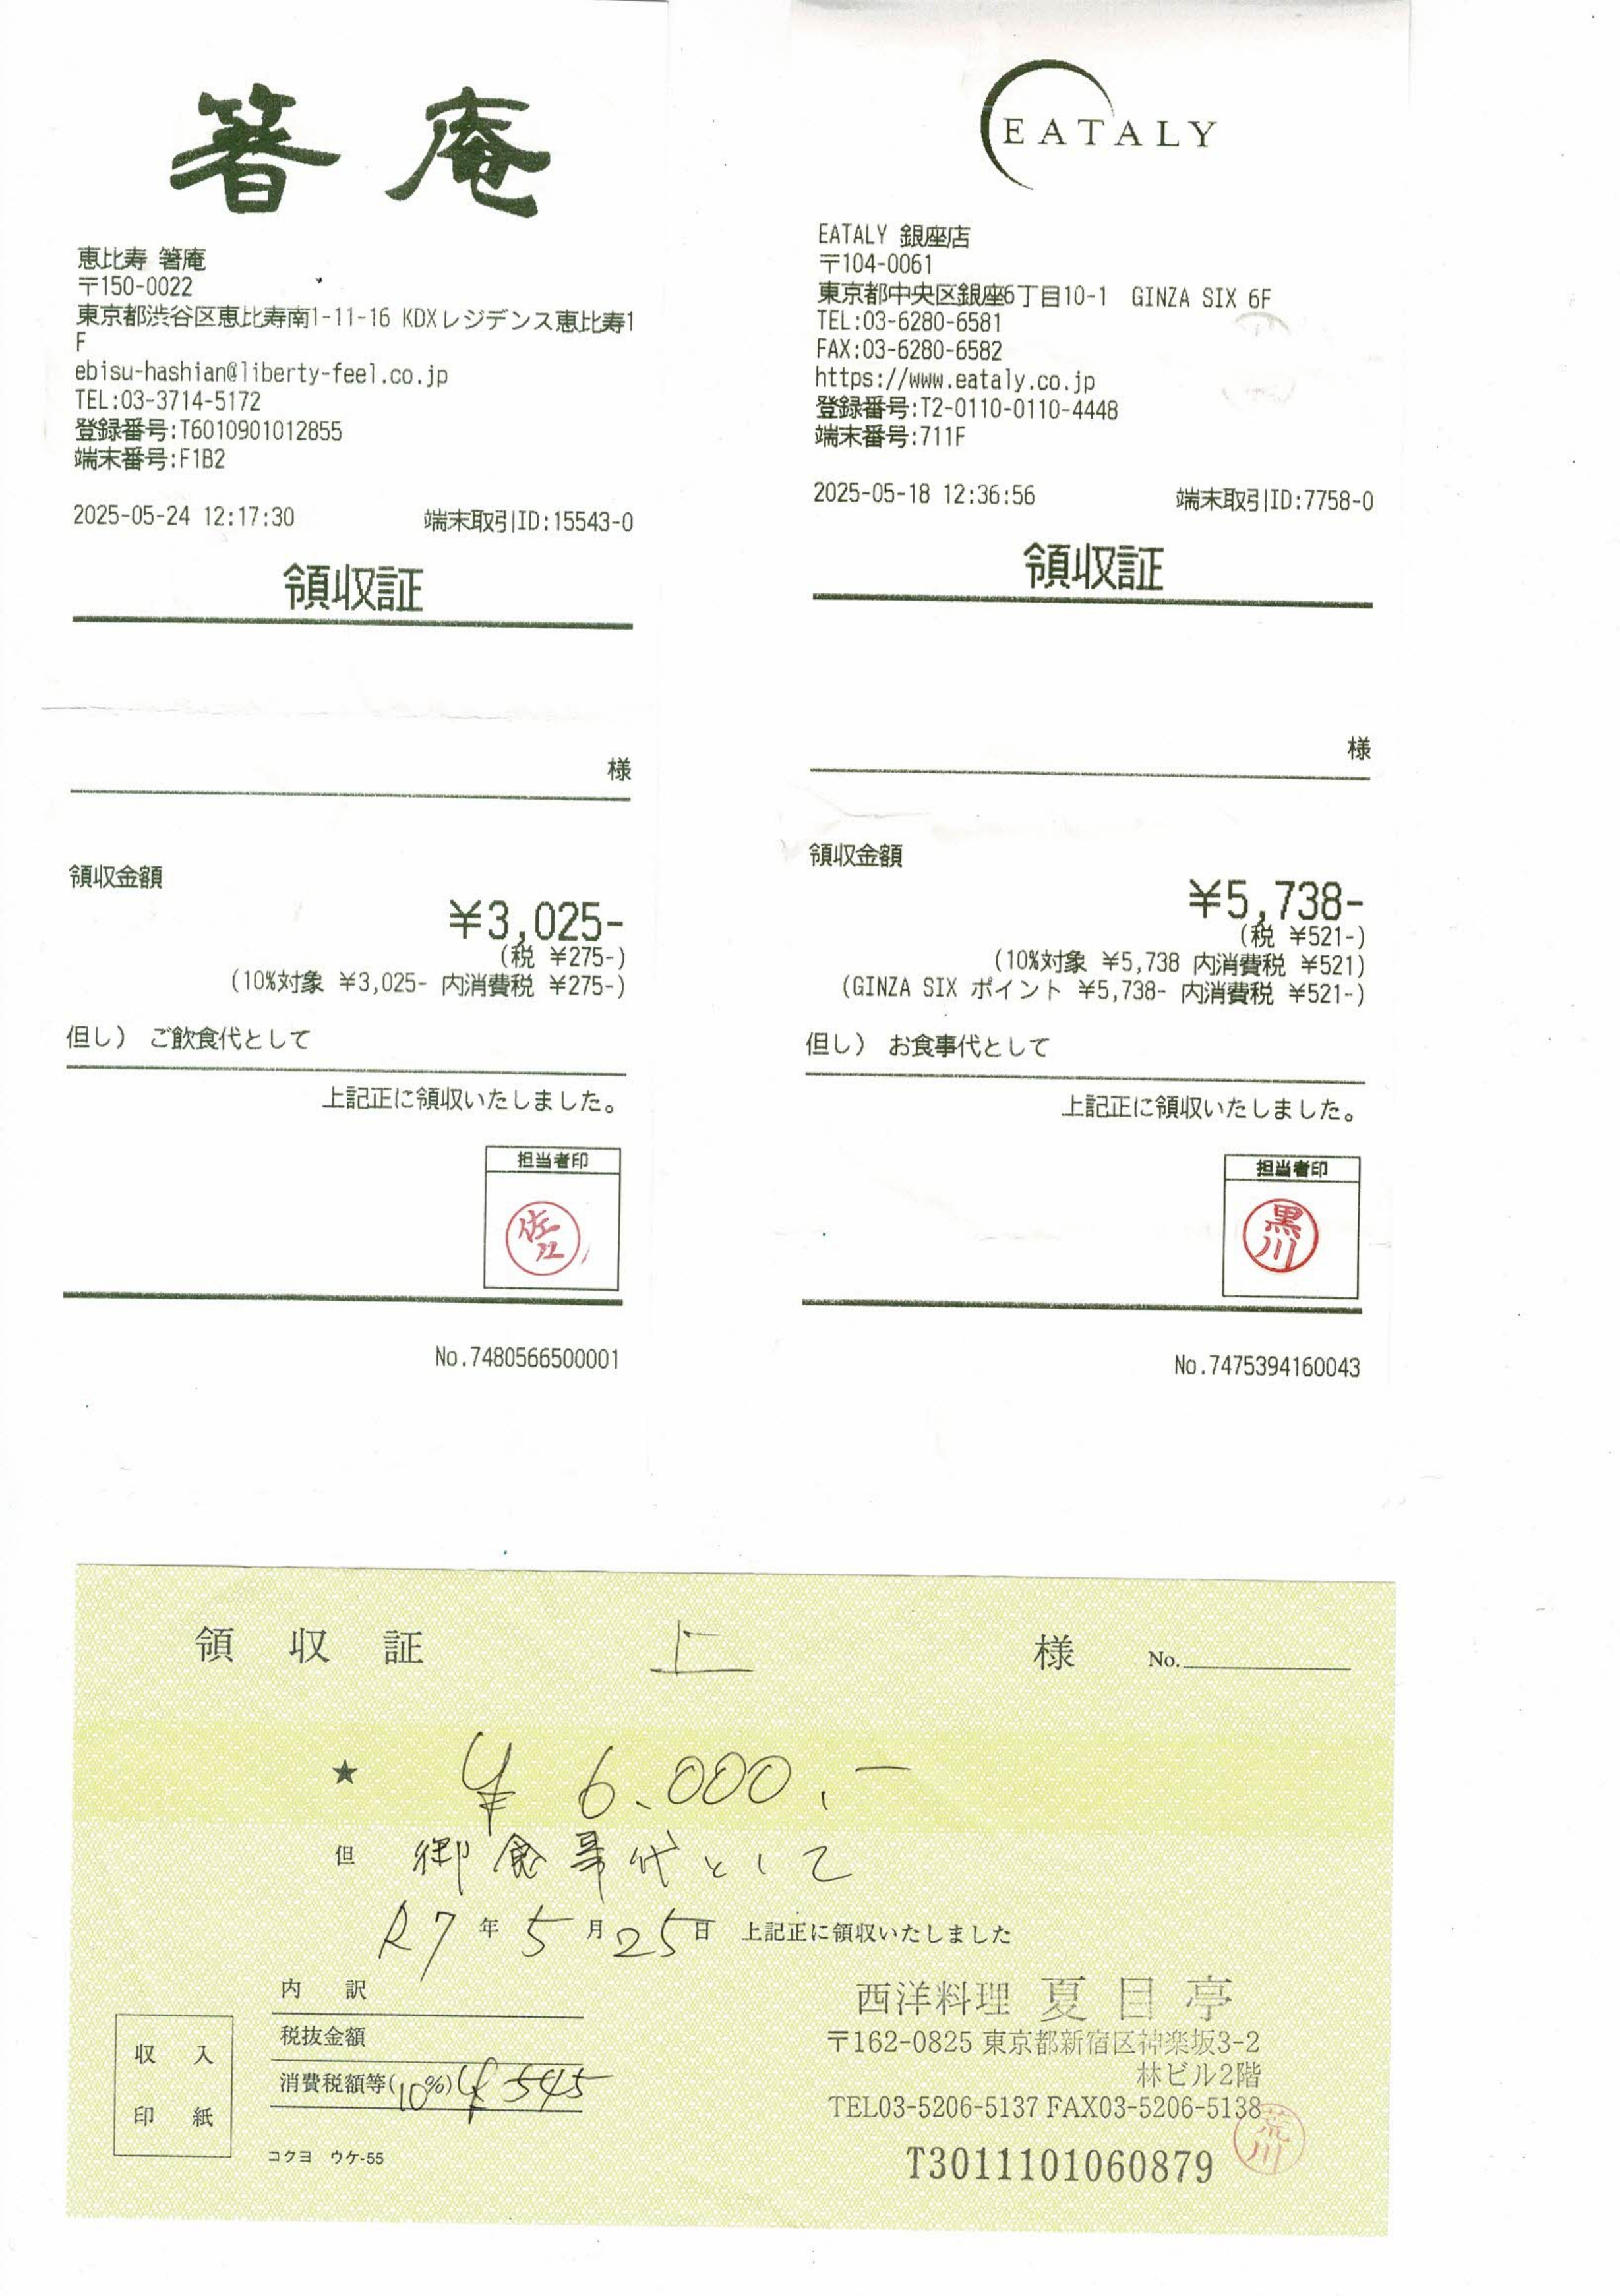 箸庵
恵比寿 箸庵
〒150-0022
東京都渋谷区恵比寿南1-11-16 KDXレジデンス恵比寿1
F
ebisu-hashian@liberty-feel.co.jp
TEL:03-3714-5172
登録番号:T6010901012855
端末番号:F1B2
2025-05-24 12:17:30 端末取引ID:15543-0
領収証
様
領収金額
¥3,025-
(税 ¥275-)
(10%対象 ¥3,025- 内消費税 ¥275-)
但し) ご飲食代として
上記正に領収いたしました。
担当者印
No.7480566500001
EATALY
EATALY 銀座店
〒104-0061
東京都中央区銀座6丁目10-1 GINZA SIX 6F
TEL:03-6280-6581
FAX:03-6280-6582
https://www.eataly.co.jp
登録番号:T2-0110-0110-4448
端末番号:711F
2025-05-18 12:36:56 端末取引ID:7758-0
領収証
様
領収金額
¥5,738-
(税 ¥521-)
(10%対象 ¥5,738 内消費税 ¥521)
(GINZA SIX ポイント ¥5,738- 内消費税 ¥521-)
但し) お食事代として
上記正に領収いたしました。
担当者印
黒川
No.7475394160043
領収証 上 様 No.
★ ¥6.000.-
但 御食事代として
R7年5月25日 上記正に領収いたしました
内訳
税抜金額
消費税額等(10%) ¥545
収入
印紙
コクヨ ウケ-55
西洋料理 夏目亭
〒162-0825 東京都新宿区神楽坂3-2
林ビル2階
TEL03-5206-5137 FAX03-5206-5138
荒川
T3011101060879